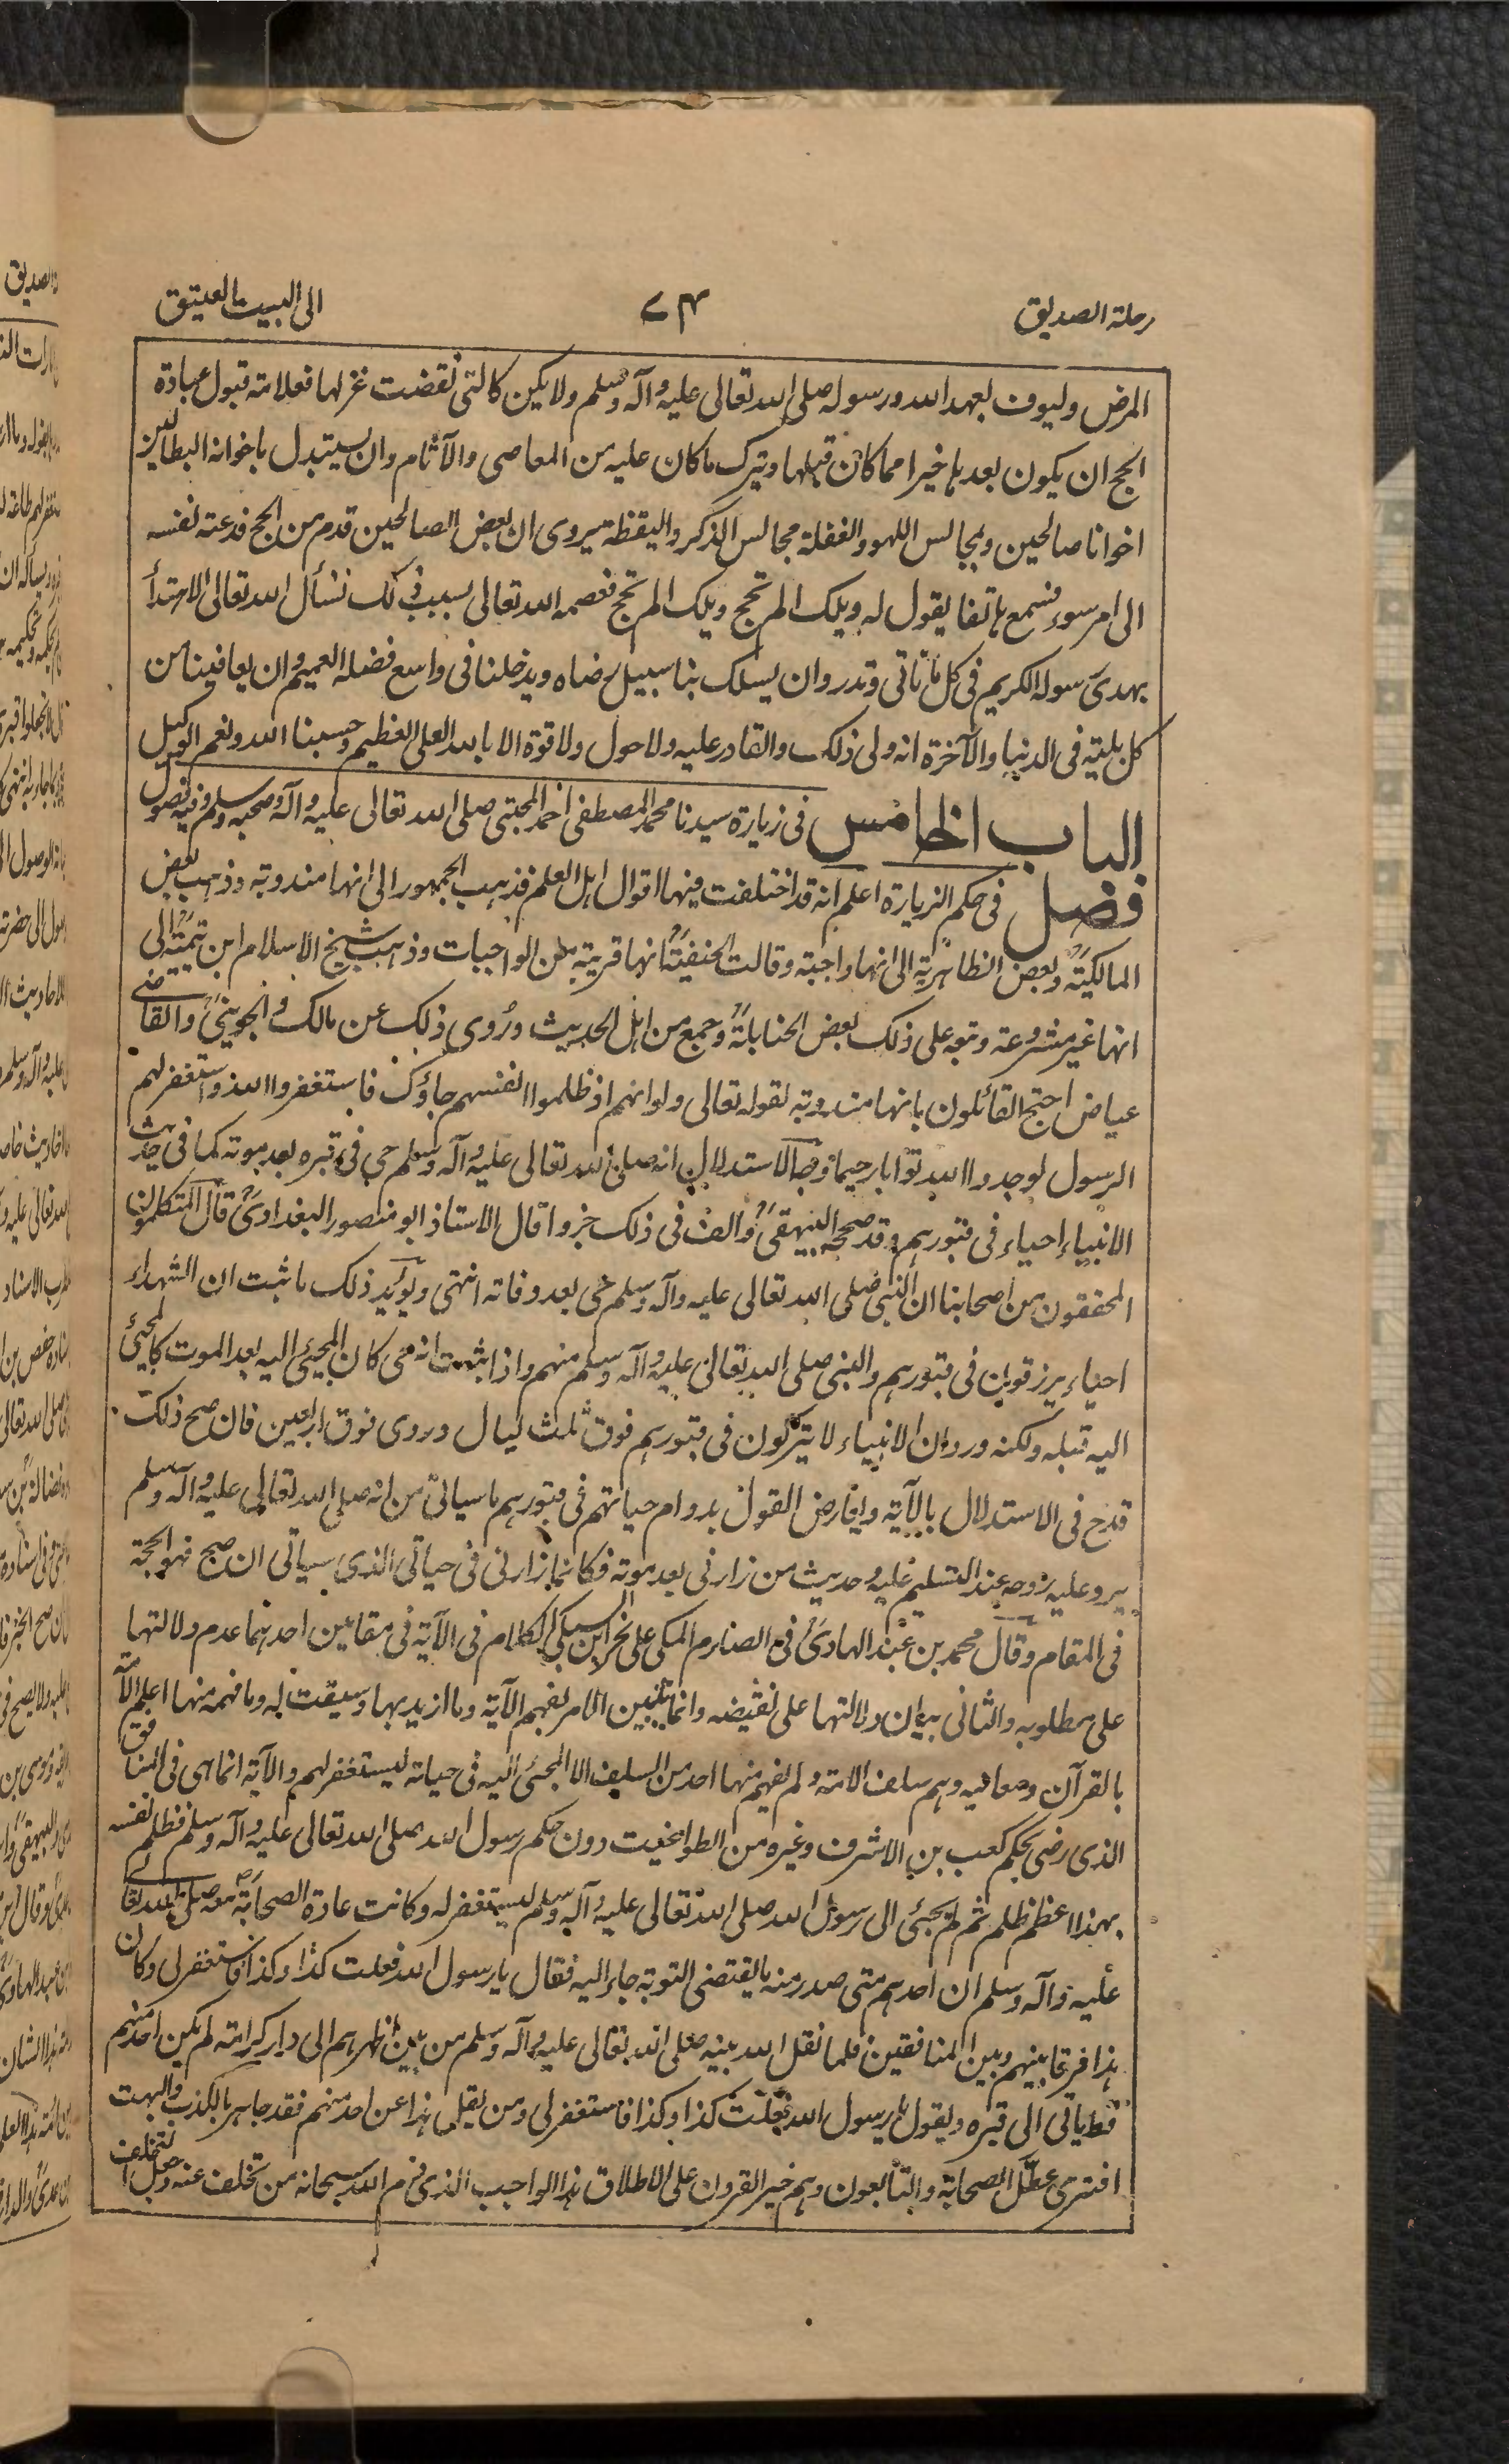 رحلة الصديق
٧٤
الى البيت العتيق
المرض وليوف بعهد الله ورسوله صلى الله تعالى عليه وآله وسلم ولا يكن كالتى نقضت غزلها فعلامة قبول عبادة
الحج ان يكون بعدها خيرا مما كان قبلها ويترك ما كان عليه من المعاصى والآثام وان يستبدل باخوانه البطالين
اخوانا صالحين وبمجالس اللهو والغفلة مجالس الذكر واليقظة يروى ان بعض الصالحين قدم من الحج فدعته نفسه
الى امر سوء فسمع هاتفا يقول له ويلك الم تحج ويلك الم تحج فعصمه الله تعالى بسبب ذلك نسأل الله تعالى الاهتدأ
بهدى رسوله الكريم فى كل ما نأتى ونذر وان يسلك بنا سبيل رضاه ويدخلنا فى واسع فضله العميم وان يعافينا من
كل بلية فى الدنيا والآخرة انه ولى ذلك والقادر عليه ولا حول ولا قوة الا بالله العلى العظيم وحسبنا الله ونعم الوكيل
الباب الخامس فى زيارة سيدنا محمد المصطفى احمد المجتبى صلى الله تعالى عليه وآله وصحبه وسلم وفيه فصول
فصل فى حكم الزيارة اعلم انه قد اختلفت فيها اقوال اهل العلم فذهب الجمهور الى انها مندوبة وذهب بعض
المالكية وبعض الظاهرية الى انها واجبة وقالت الحنفية انها قريبة من الواجبات وذهب شيخ الاسلام ابن تيمية الى
انها غير مشروعة وتبعه على ذلك بعض الحنابلة وجمع من اهل الحديث وروى ذلك عن مالك والجوينى والقاضى
عياض احتج القائلون بانها مندوبة لقوله تعالى ولو انهم اذ ظلموا انفسهم جاؤك فاستغفروا الله واستغفر لهم
الرسول لوجدوا الله توابا رحيما وجه الاستدلال انه صلى الله تعالى عليه وآله وسلم حى فى قبره بعد موته كما فى حديث
الانبياء احياء فى قبورهم وقد صححه البيهقى والف فى ذلك جزوا قال الاستاذ ابو منصور البغدادى قال المتكلمون
المحققون من اصحابنا ان النبى صلى الله تعالى عليه وآله وسلم حى بعد وفاته انتهى ويؤيد ذلك ما ثبت ان الشهداء
احياء يرزقون فى قبورهم والنبى صلى الله تعالى عليه وآله وسلم منهم واذا ثبت انه حى كان المجيئ اليه بعد الموت كالمجيئ
اليه قبله ولكنه ورد ان الانبياء لا يتركون فى قبورهم فوق ثلث ليال وروى فوق اربعين فان صح ذلك
قدح فى الاستدلال بالآية ويعارض القول بدوام حياتهم فى قبورهم ما سياتى من انه صلى الله تعالى عليه وآله وسلم
يرد عليه روحه عند التسليم عليه وحديث من زارنى بعد موته فكانما زارنى فى حياتى الذى سياتى ان صح فهو الحجة
فى المقام وقال محمد بن عبد الهادى فى الصارم المنكى على نحر ابن السبكى الكلام فى الآية فى مقامين احدهما عدم دلالتها
على مطلوبه والثانى بيان دلالتها على نقيضه وانما يتبين الامر بفهم الآية وما اريد بها وسيقت له وما فهمه منها اعلم الامة
بالقرآن ومعانيه وهم سلف الامة ولم يفهم منها احد من السلف الا المجيئ اليه فى حياته ليستغفر لهم والآية انما هى فى المنافق
الذى رضى بحكم كعب بن الاشرف وغيره من الطواغيت دون حكم رسول الله صلى الله تعالى عليه وآله وسلم فظلم نفسه
بهذا اعظم ظلم ثم لم يجئ الى رسول الله صلى الله تعالى عليه وآله وسلم ليستغفر له وكانت عادة الصحابة معه صلى الله تعالى
عليه وآله وسلم ان احدهم متى صدر منه ما يقتضى التوبة جاء اليه فقال يا رسول الله فعلت كذا وكذا فاستغفر لى وكان
هذا فرقا بينهم وبين المنافقين فلما نقل الله نبيه صلى الله تعالى عليه وآله وسلم من بين اظهرهم الى دار كرامته لم يكن احد منهم
قط ياتى الى قبره ويقول يا رسول الله فعلت كذا وكذا فاستغفر لى ومن نقل هذا عن احد منهم فقد جاهر بالكذب والبهت
افترى عطل الصحابة والتابعون وهم خير القرون على الاطلاق هذا الواجب الذى ذم الله سبحانه من تخلف عنه وجعل التخلف